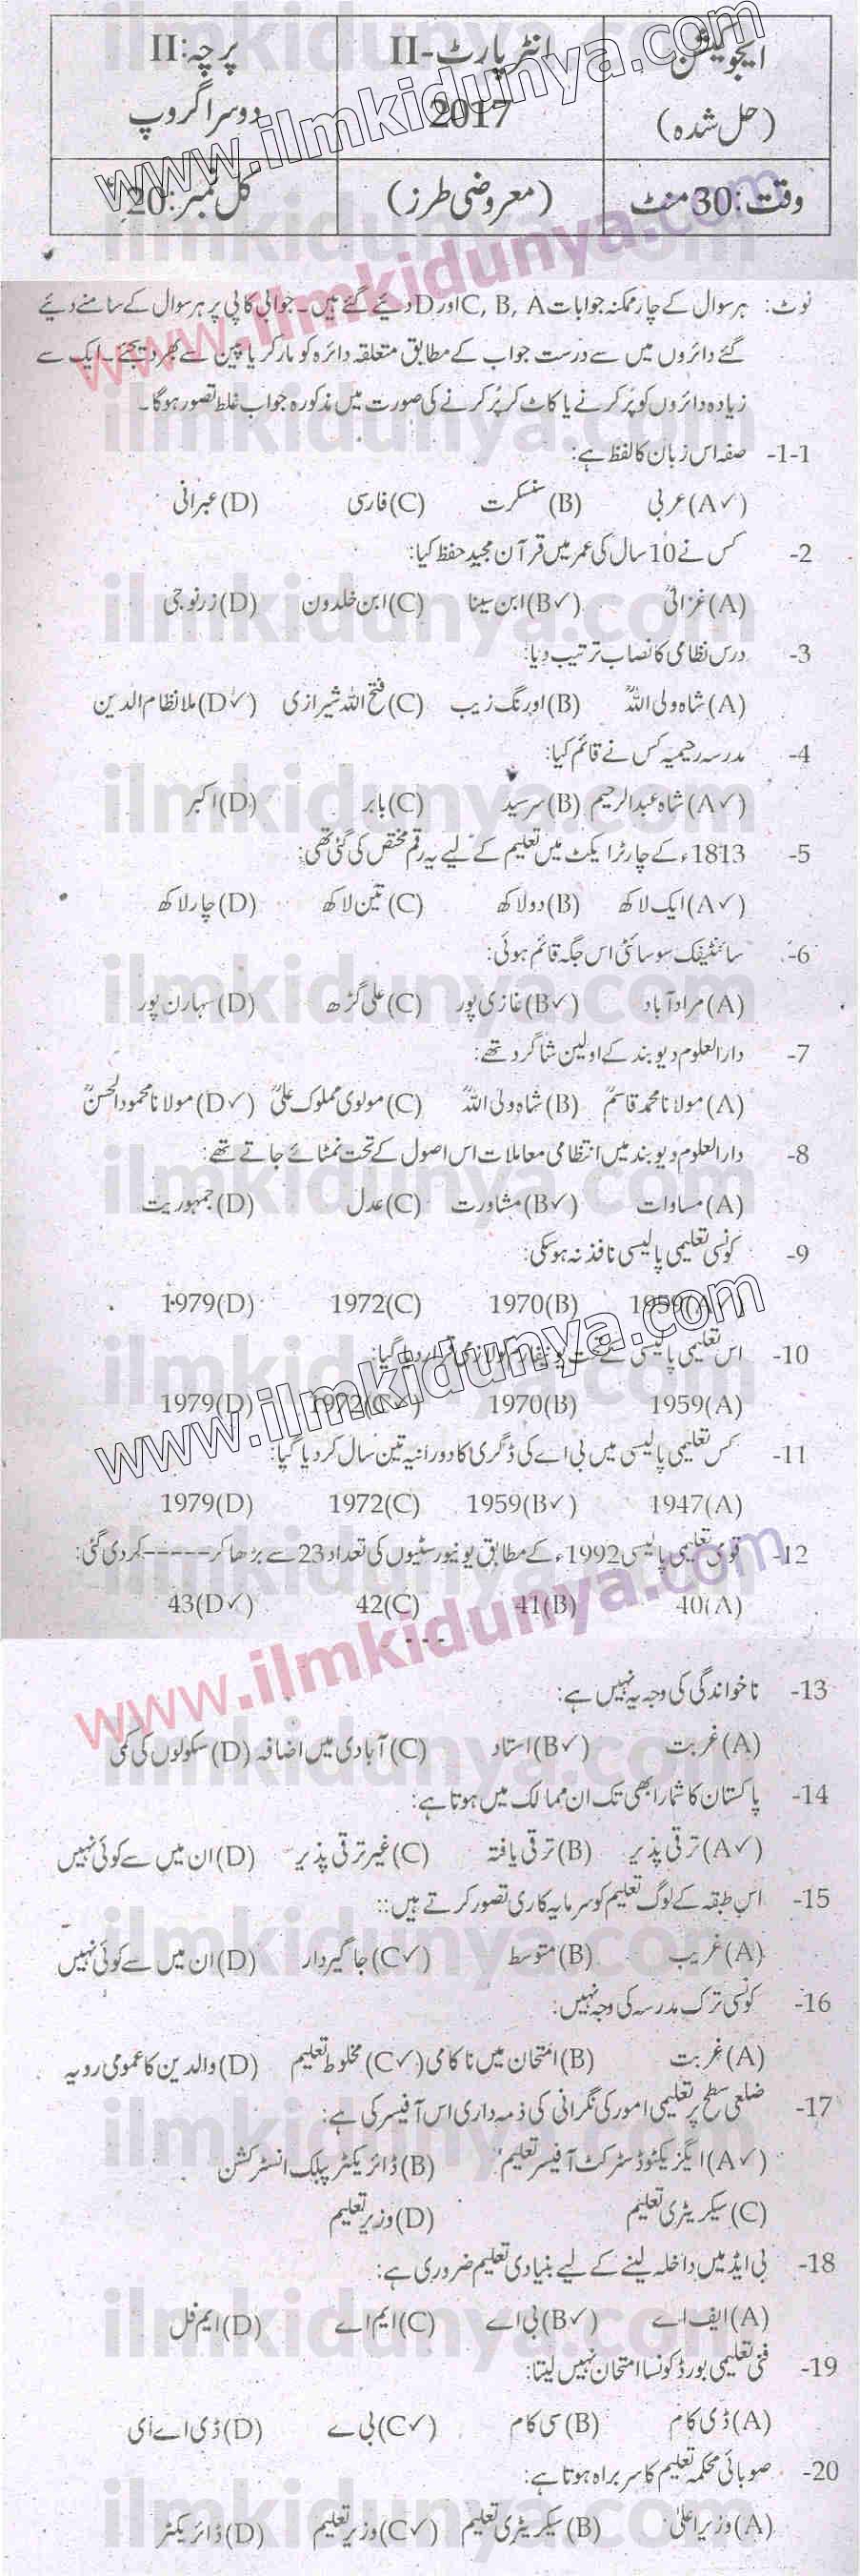 ایجوکیشن
(حل شدہ)
انٹر پارٹ-II
2017
پرچہ: II
دوسرا گروپ
وقت: 30 منٹ
(معروضی طرز)
کل نمبر: 20
نوٹ: ہر سوال کے چار ممکنہ جوابات C, B, A اور D دیئے گئے ہیں۔ جوابی کاپی پر ہر سوال کے سامنے دیئے
گئے دائروں میں سے درست جواب کے مطابق متعلقہ دائرہ کو مارکر یا پین سے بھر دیجئے۔ ایک سے
زیادہ دائروں کو پُر کرنے یا کاٹ کر پُر کرنے کی صورت میں مذکورہ جواب غلط تصور ہوگا۔
1-1- صفہ اس زبان کا لفظ ہے:
(A✓) عربی (B) سنسکرت (C) فارسی (D) عبرانی
2- کس نے 10 سال کی عمر میں قرآن مجید حفظ کیا:
(A) غزالیؒ (B✓) ابن سینا (C) ابن خلدون (D) زرنوجی
3- درس نظامی کا نصاب ترتیب دیا:
(A) شاہ ولی اللہؒ (B) اورنگ زیب (C) فتح اللہ شیرازی (D✓) ملا نظام الدین
4- مدرسہ رحیمیہ کس نے قائم کیا:
(A✓) شاہ عبدالرحیم (B) سرسید (C) بابر (D) اکبر
5- 1813ء کے چارٹر ایکٹ میں تعلیم کے لیے یہ رقم مختص کی گئی تھی:
(A✓) ایک لاکھ (B) دو لاکھ (C) تین لاکھ (D) چار لاکھ
6- سائنٹیفک سوسائٹی اس جگہ قائم ہوئی:
(A) مراد آباد (B✓) غازی پور (C) علی گڑھ (D) سہارن پور
7- دارالعلوم دیوبند کے اولین شاگرد تھے:
(A) مولانا محمد قاسمؒ (B) شاہ ولی اللہؒ (C) مولوی مملوک علیؒ (D✓) مولانا محمود الحسنؒ
8- دارالعلوم دیوبند میں انتظامی معاملات اس اصول کے تحت نمٹائے جاتے تھے:
(A) مساوات (B✓) مشاورت (C) عدل (D) جمہوریت
9- کونسی تعلیمی پالیسی نافذ نہ ہو سکی:
1959(A✓) 1970(B) 1972(C) 1979(D)
10- اس تعلیمی پالیسی کے تحت یونیفارم کو لازمی قرار دیا گیا:
1959(A) 1970(B) 1972(C✓) 1979(D)
11- کس تعلیمی پالیسی میں بی اے کی ڈگری کا دورانیہ تین سال کر دیا گیا:
1947(A) 1959(B✓) 1972(C) 1979(D)
12- قومی تعلیمی پالیسی 1992ء کے مطابق یونیورسٹیوں کی تعداد 23 سے بڑھا کر ----- کر دی گئی:
40(A) 41(B) 42(C) 43(D✓)
13- ناخواندگی کی وجہ یہ نہیں ہے:
(A) غربت (B✓) استاد (C) آبادی میں اضافہ (D) سکولوں کی کمی
14- پاکستان کا شمار ابھی تک ان ممالک میں ہوتا ہے:
(A✓) ترقی پذیر (B) ترقی یافتہ (C) غیر ترقی پذیر (D) ان میں سے کوئی نہیں
15- اس طبقہ کے لوگ تعلیم کو سرمایہ کاری تصور کرتے ہیں::
(A) غریب (B) متوسط (C✓) جاگیردار (D) ان میں سے کوئی نہیں
16- کونسی ترک مدرسہ کی وجہ نہیں:
(A) غربت (B) امتحان میں ناکامی (C✓) مخلوط تعلیم (D) والدین کا عمومی رویہ
17- ضلعی سطح پر تعلیمی امور کی نگرانی کی ذمہ داری اس آفیسر کی ہے:
(A✓) ایگزیکٹو ڈسٹرکٹ آفیسر تعلیم (B) ڈائریکٹر پبلک انسٹرکشن
(C) سیکریٹری تعلیم (D) وزیر تعلیم
18- بی ایڈ میں داخلہ لینے کے لیے بنیادی تعلیم ضروری ہے:
(A) ایف اے (B✓) بی اے (C) ایم اے (D) ایم فل
19- فنی تعلیمی بورڈ کونسا امتحان نہیں لیتا:
(A) ڈی کام (B) سی کام (C✓) بی اے (D) ڈی اے ای
20- صوبائی محکمہ تعلیم کا سربراہ ہوتا ہے:
(A) وزیر اعلیٰ (B) سیکریٹری تعلیم (C✓) وزیر تعلیم (D) ڈائریکٹر
www.ilmkidunya.com